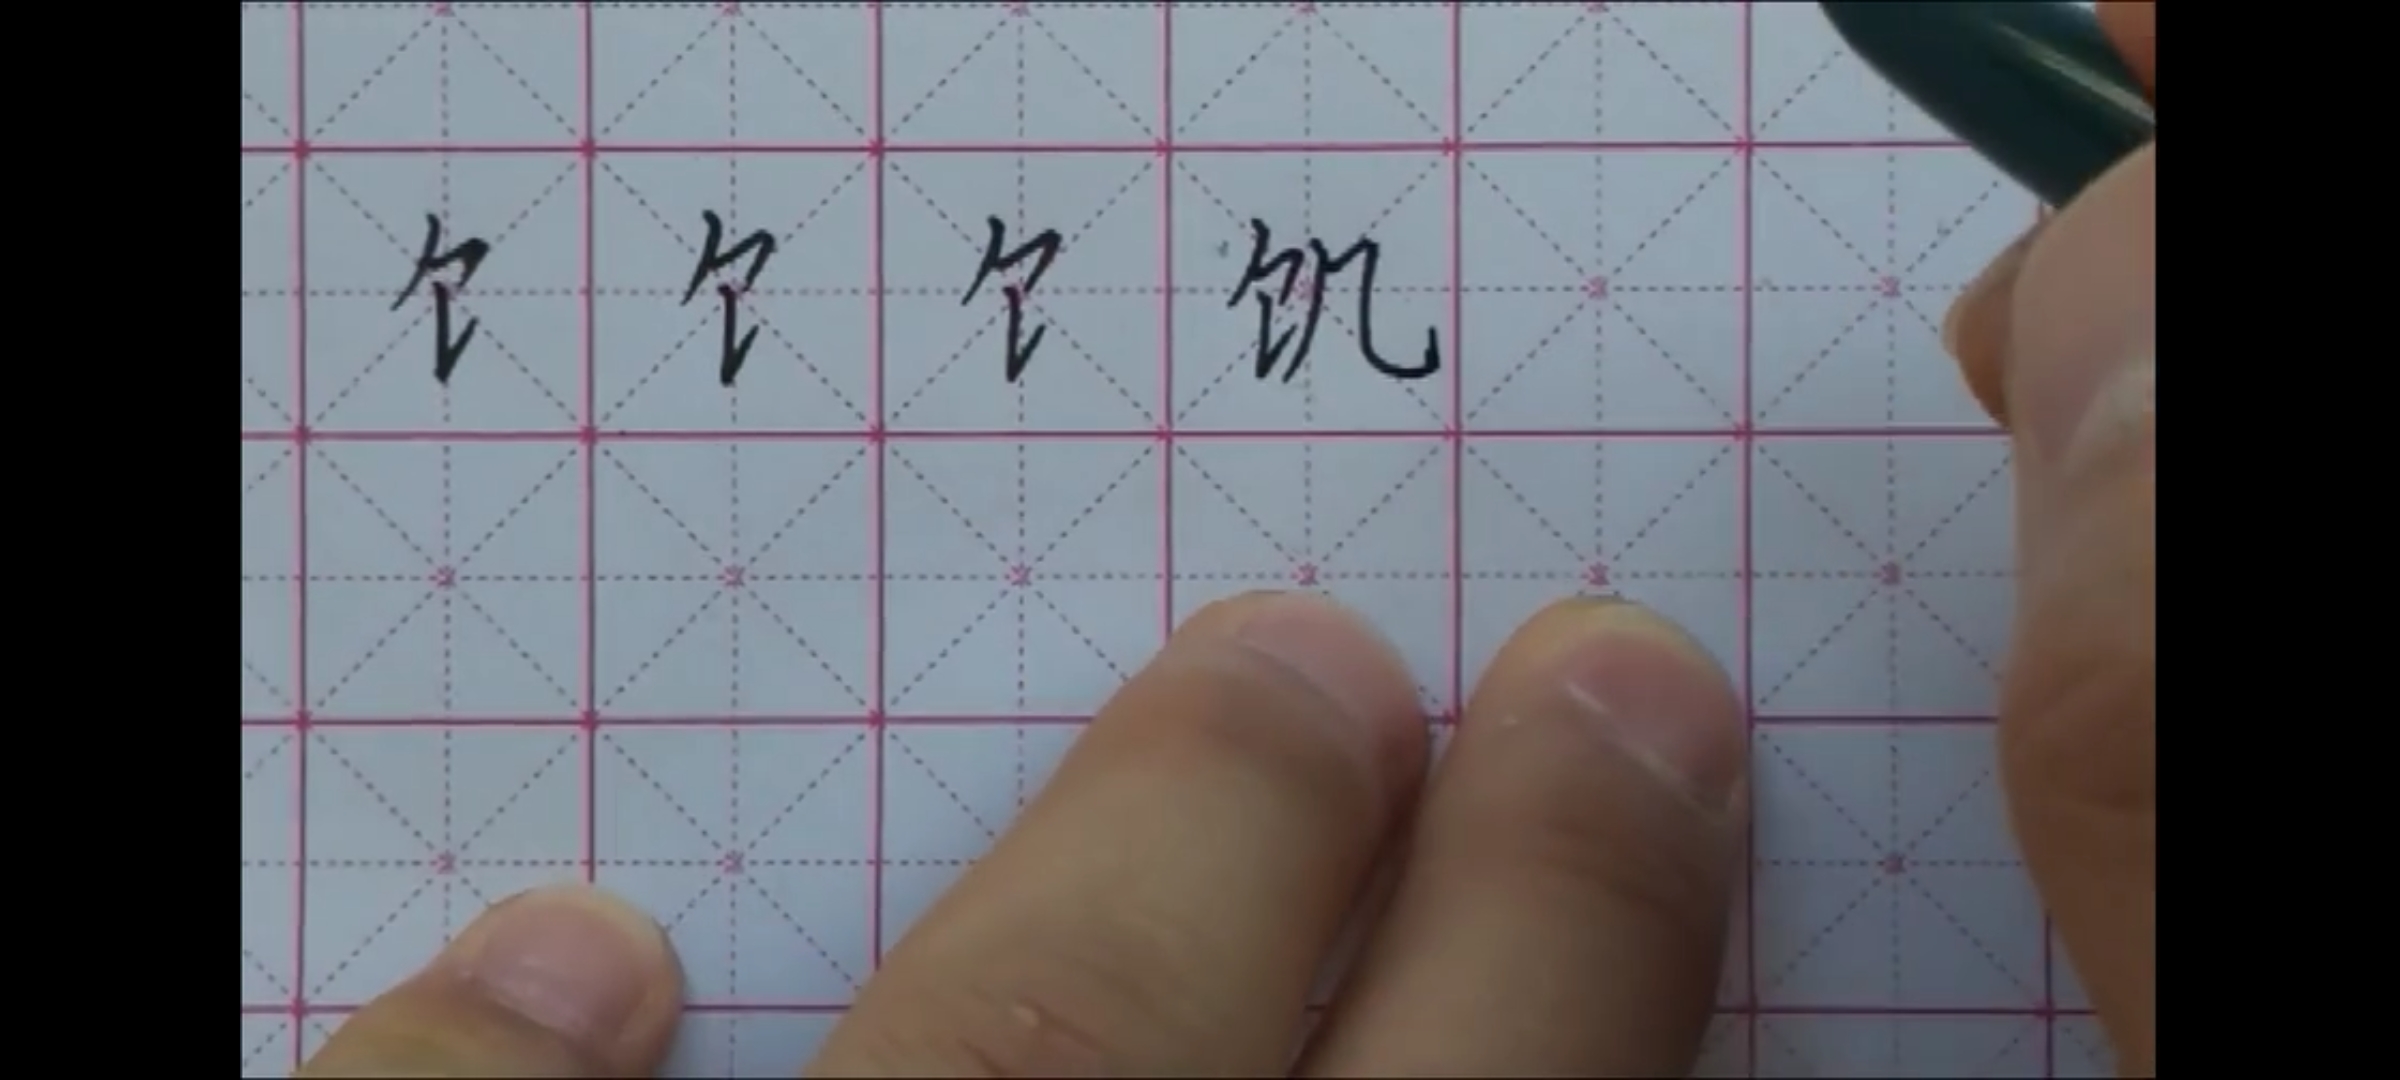 饣 饣 饣 饥